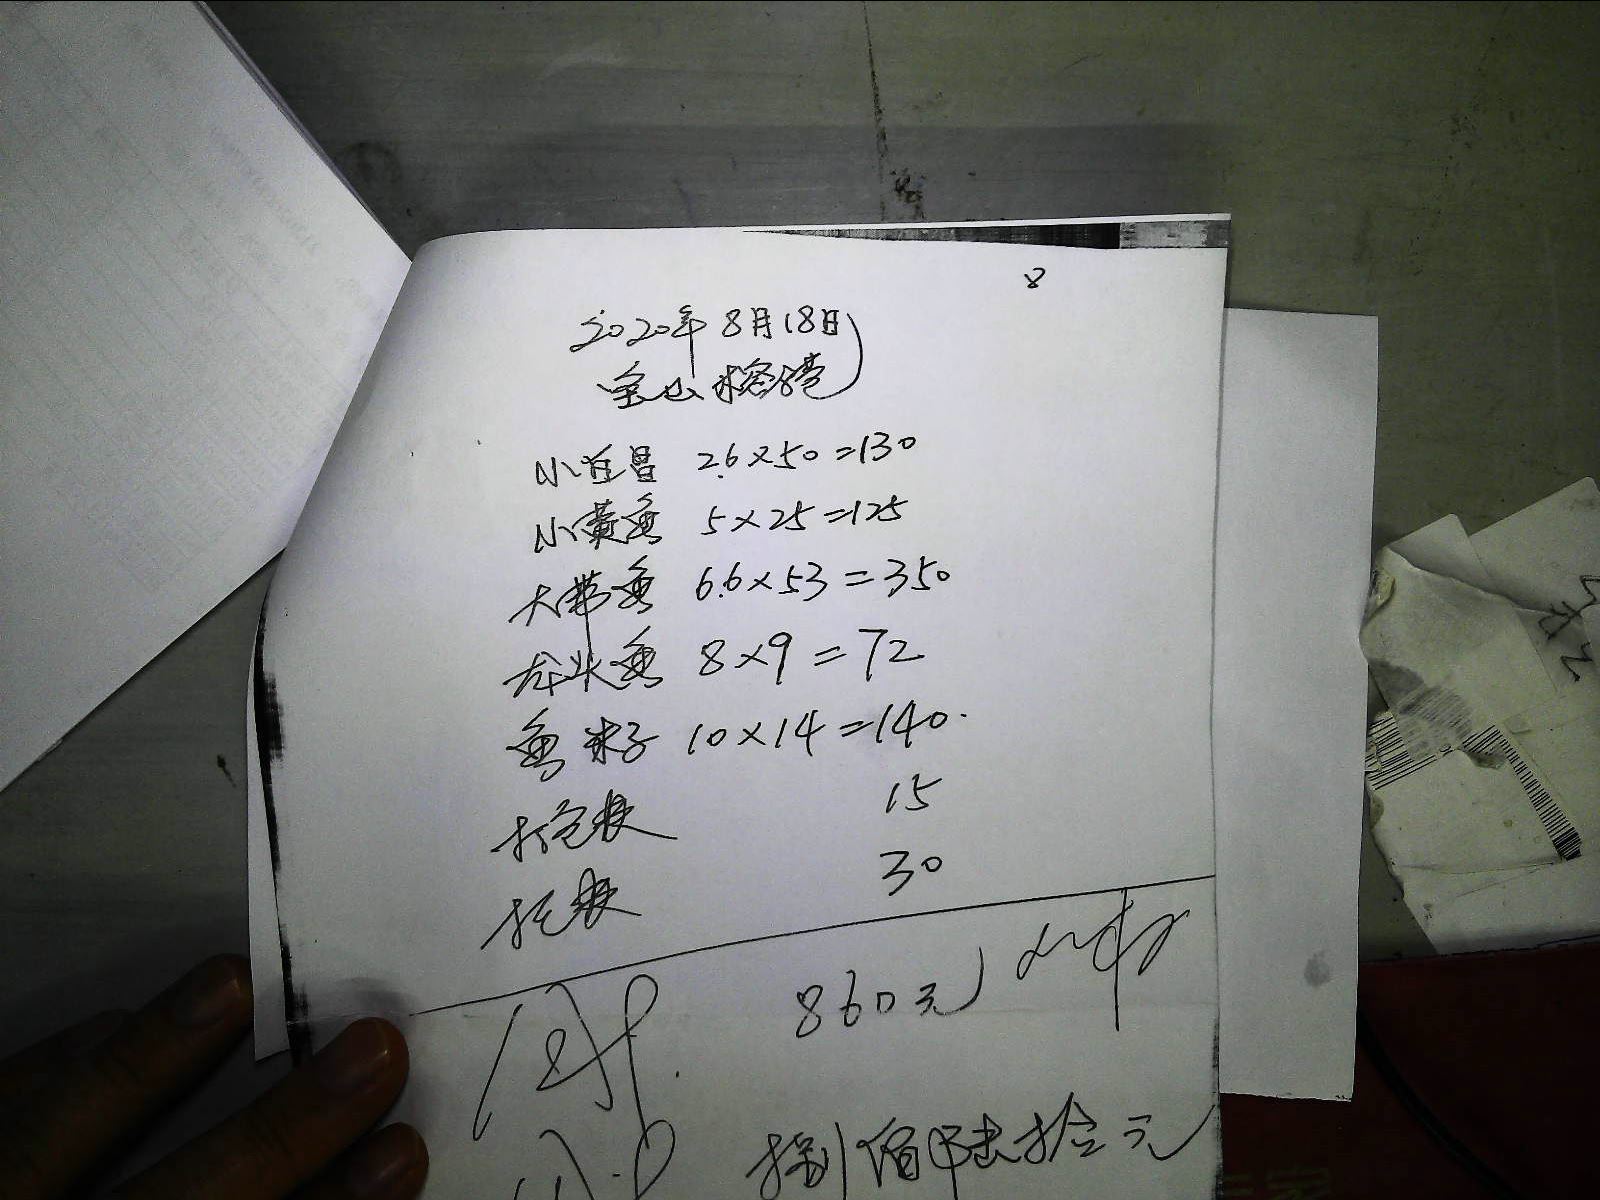 8
2020年8月18日
宝山
小白昌 2.6×50=130
小黄鱼 5×25=125
大带鱼 6.6×53=350
龙头鱼 8×9=72
鱼籽子 10×14=140
打包费 15
托费 30
860元
捌佰陆拾元